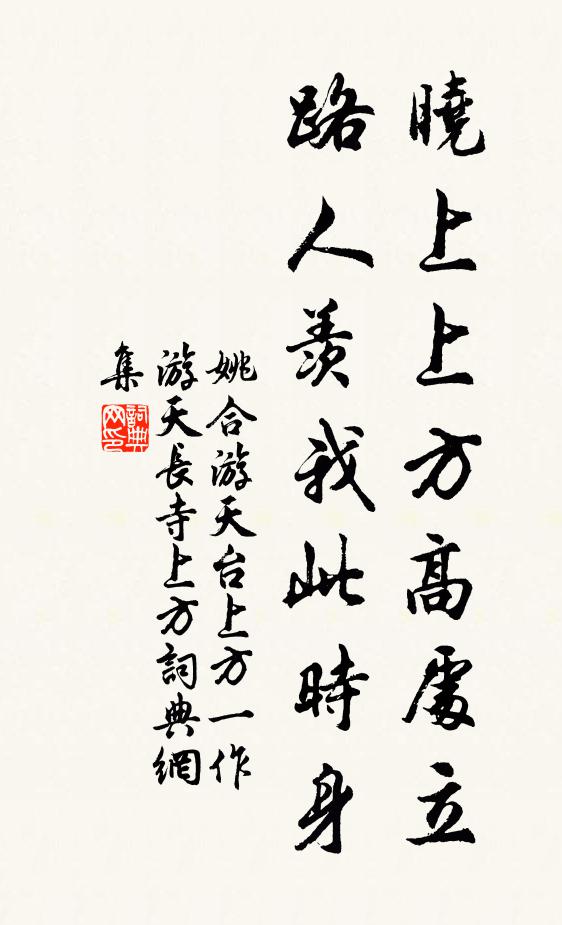 曉上上方高處立
路人羨我此時身
姚合游天台上方一作
游天長寺上方詞典網
集
詞典
网印